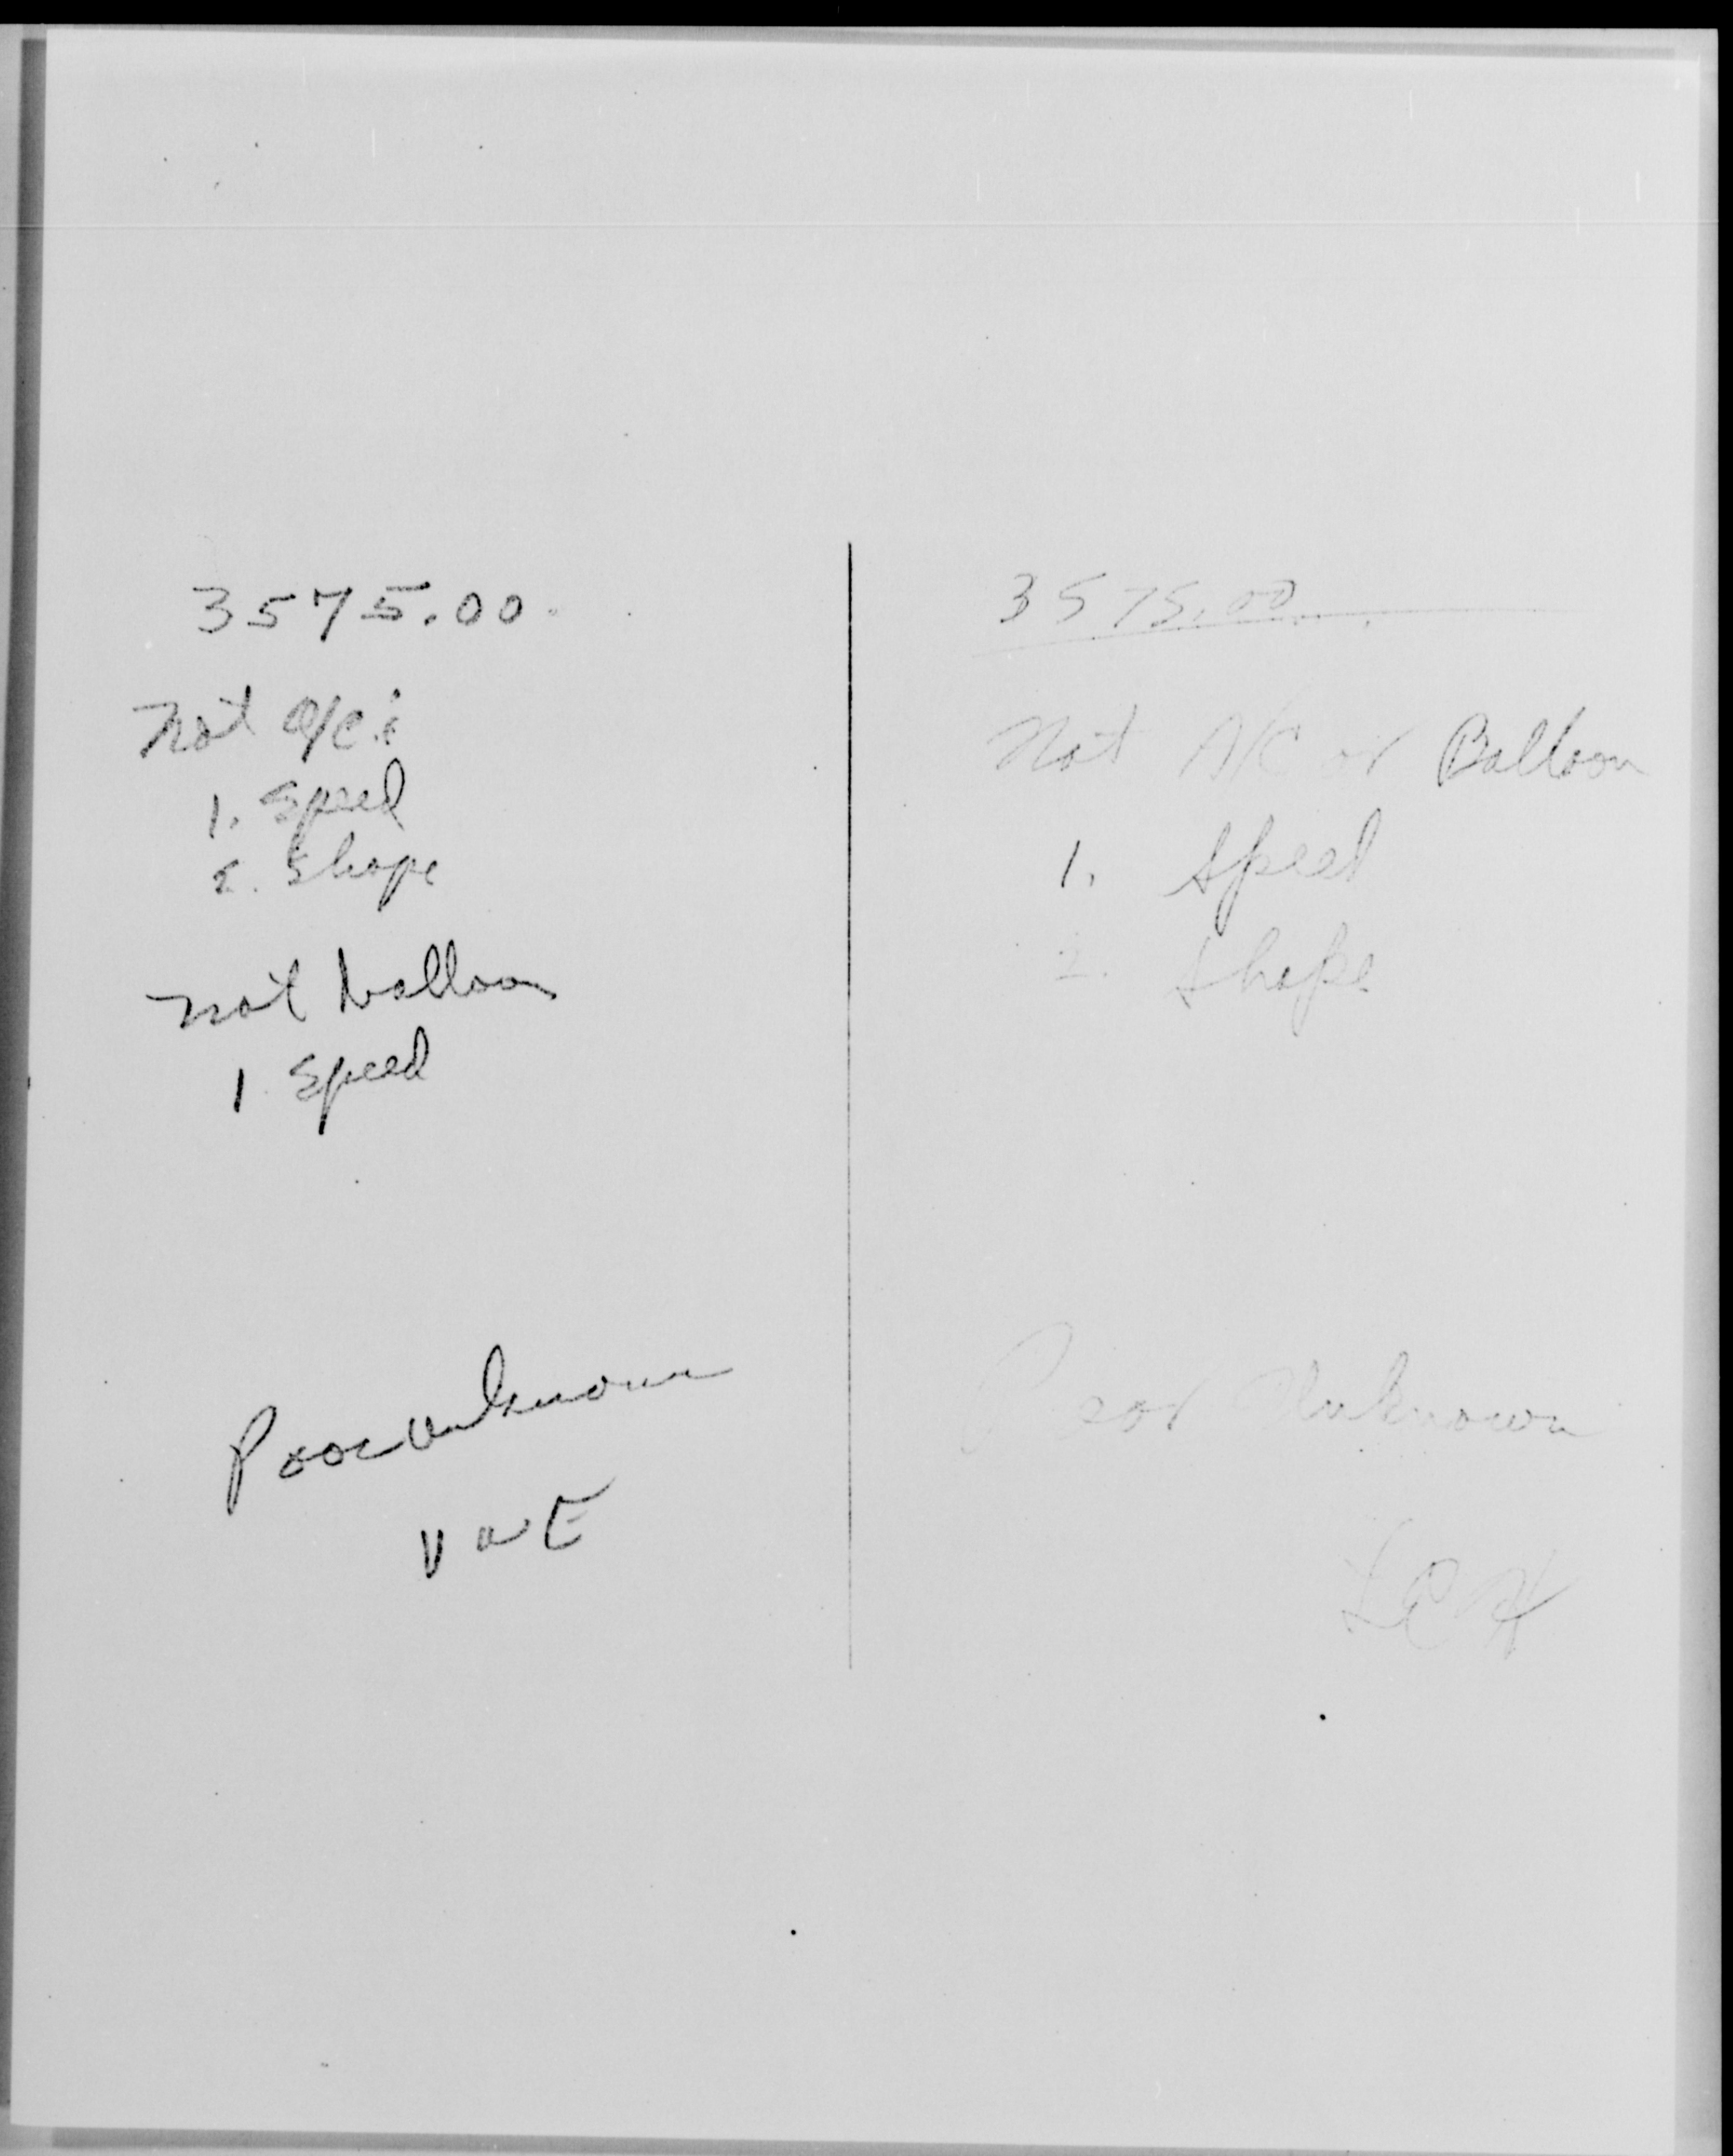 3575.00
Not a/c:
1. Speed
2. Shape
Not balloon
1 Speed
Poor unknown
VWE
3575.00
Not A/C or Balloon
1. Speed
2. Shape
Poor Unknown